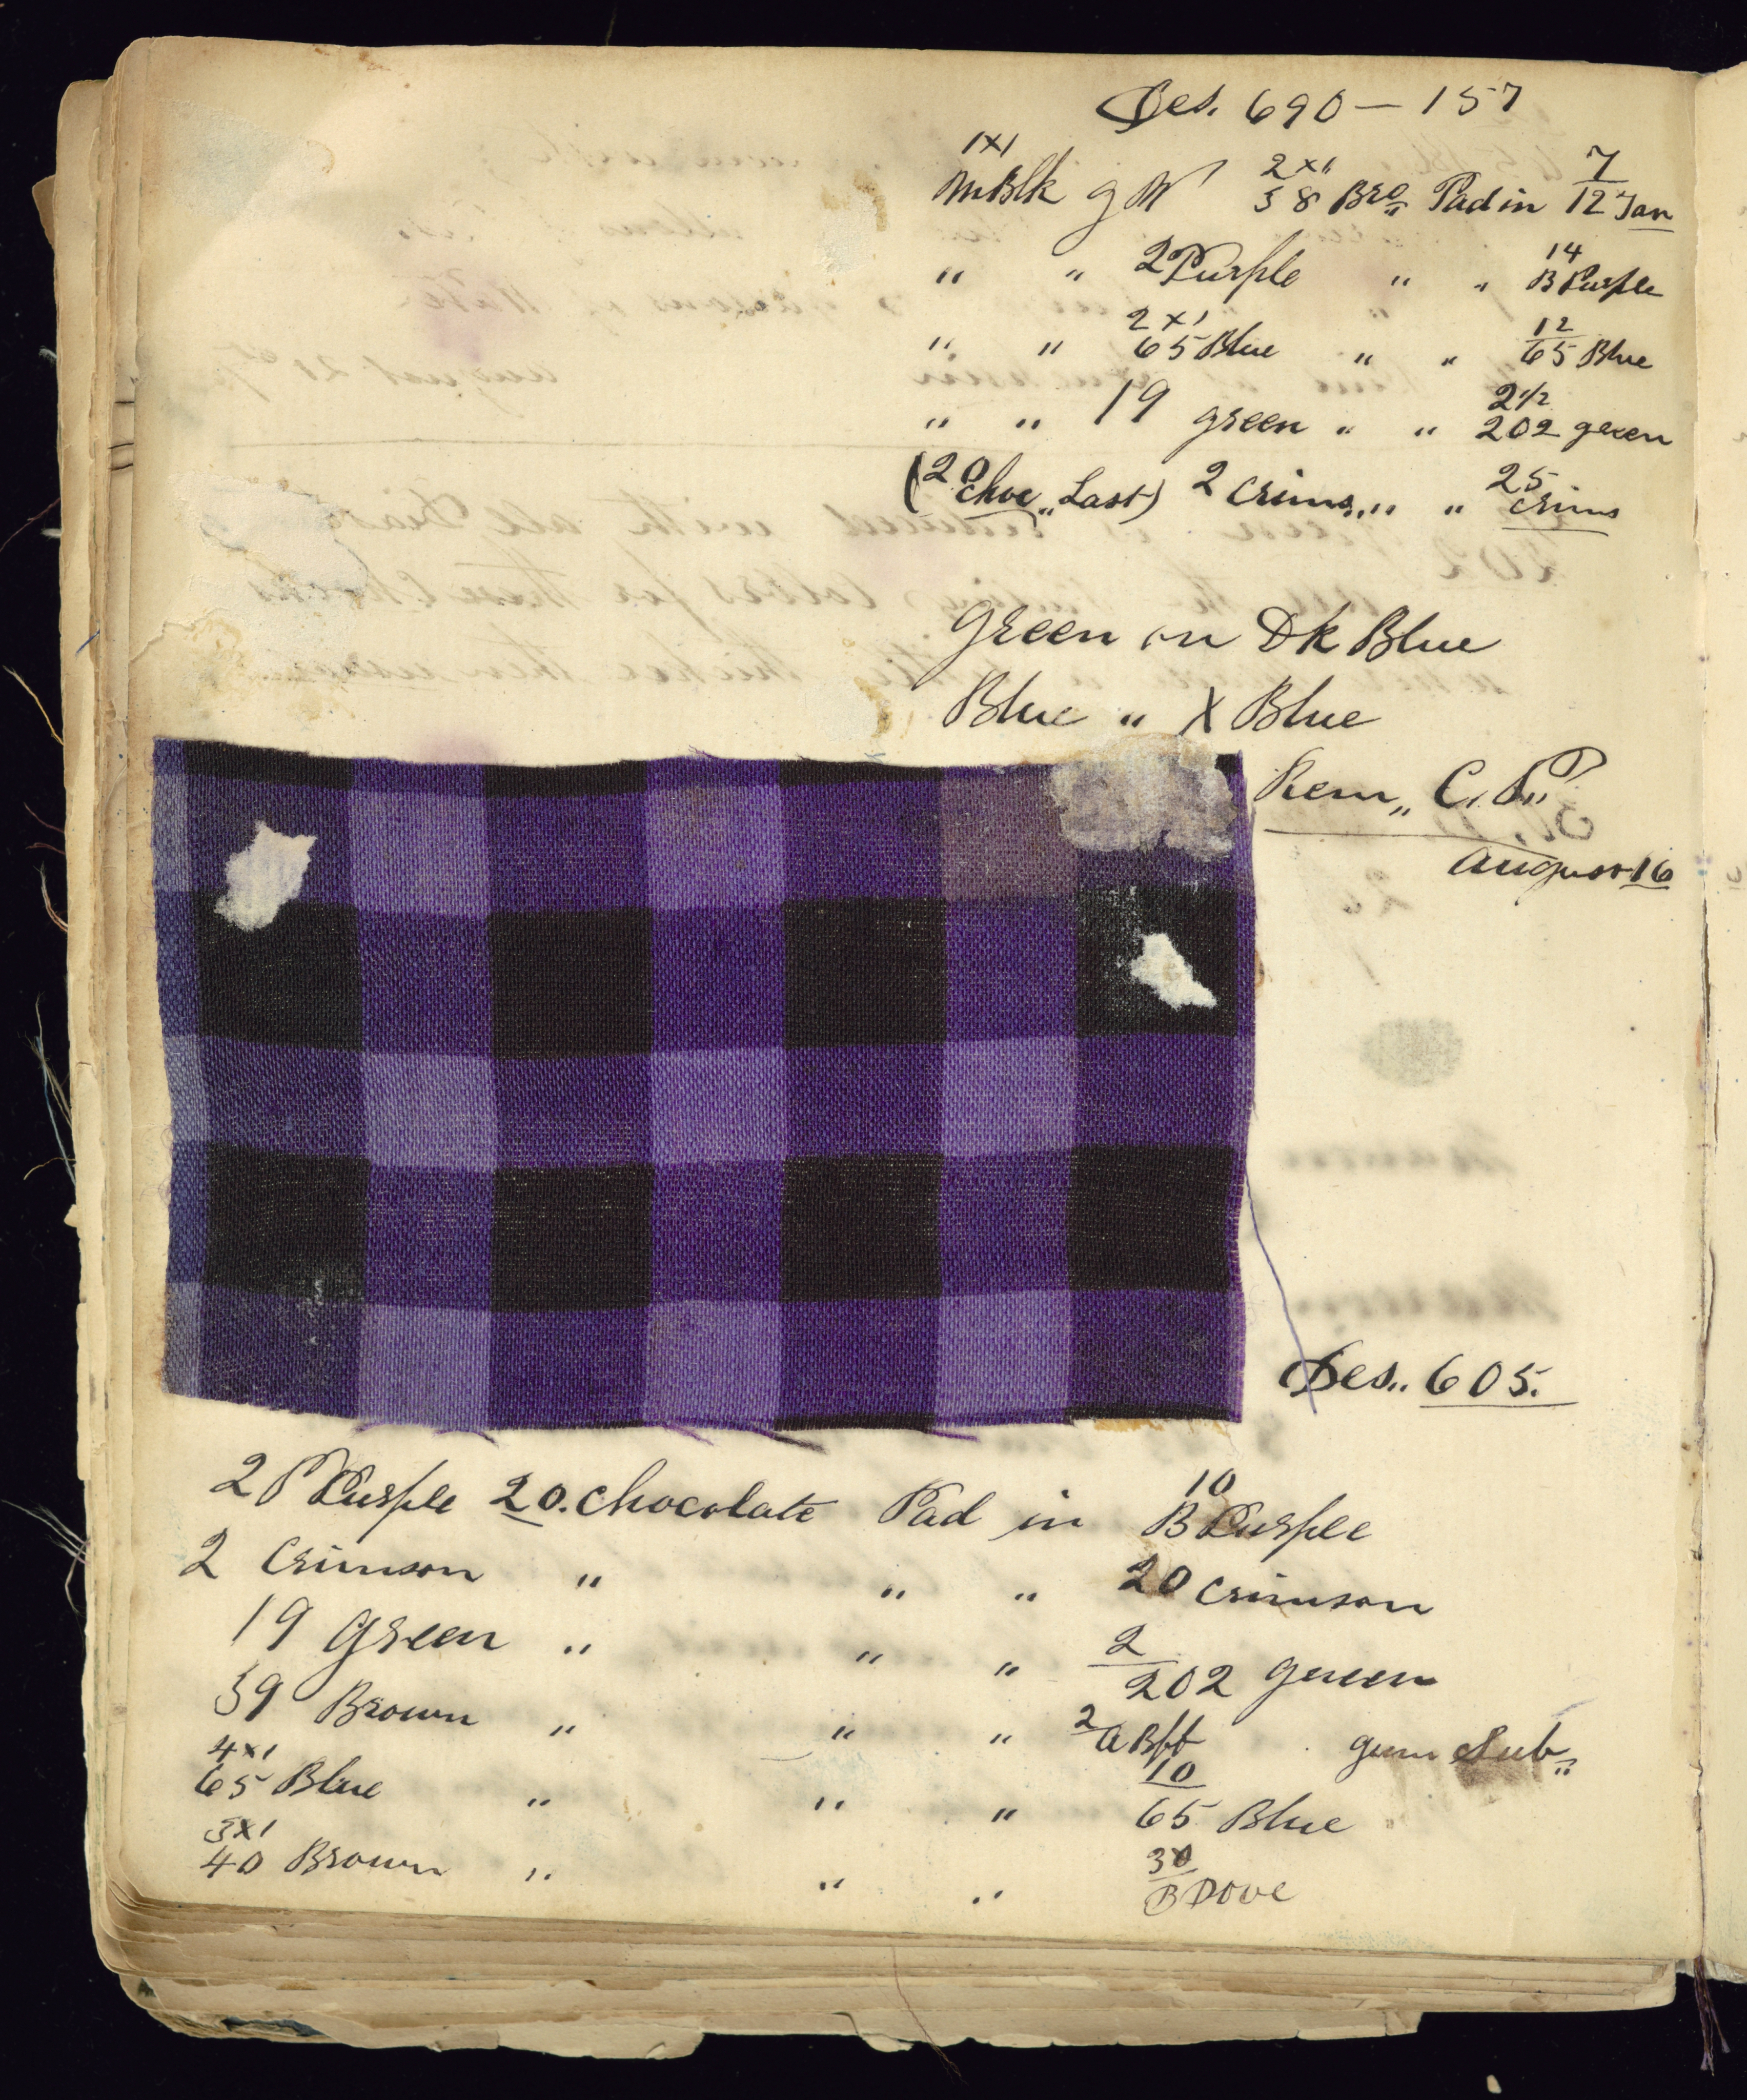 Des. 690 — 157
1x1 2x1 7
M Blk g W 58 Bro Pad in 12 Tan
" " 2 P Purple " " 14 B Purple
2x1 12
" " 65 Blue " " 65 Blue
2 1/2
" " 19 green " " 202 green
(20 choc,, Last) 2 Crims,, " " 25 Crims
Green on Dk Blue
Blue " X Blue
Rem,, C. P.,
August 16
Des,, 605.
10
2 P Purple 20. Chocolate Pad in B Purple
2 Crimson " " " 20 Crimson
2
19 Green " " " 202 green
59 Brown " " " 2 a Bff gum Sub,,
4x1 10
65 Blue " " " 65 Blue
3x1 30
40 Brown " " " B Dove